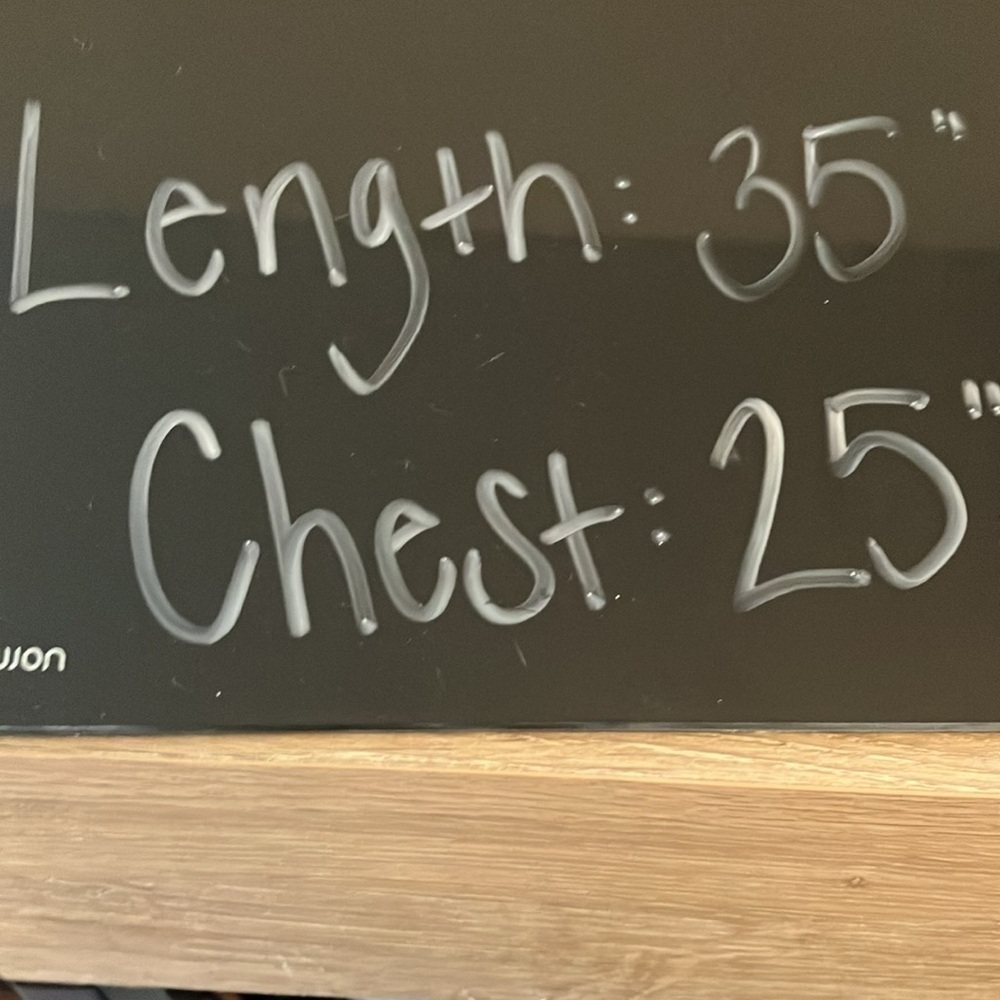 Length: 35"
Chest: 25"